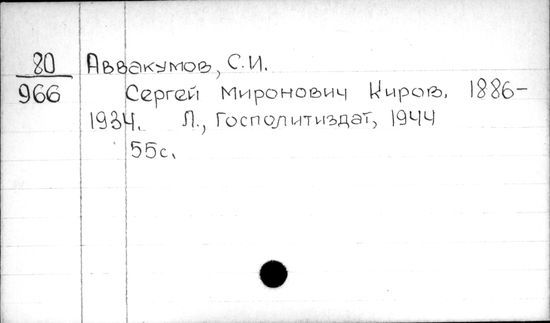 80 Аввакумов, С.И.
966 Сергей Миронович Киров. 1886-
1934. Л., Госполитиздат, 1944
55с.